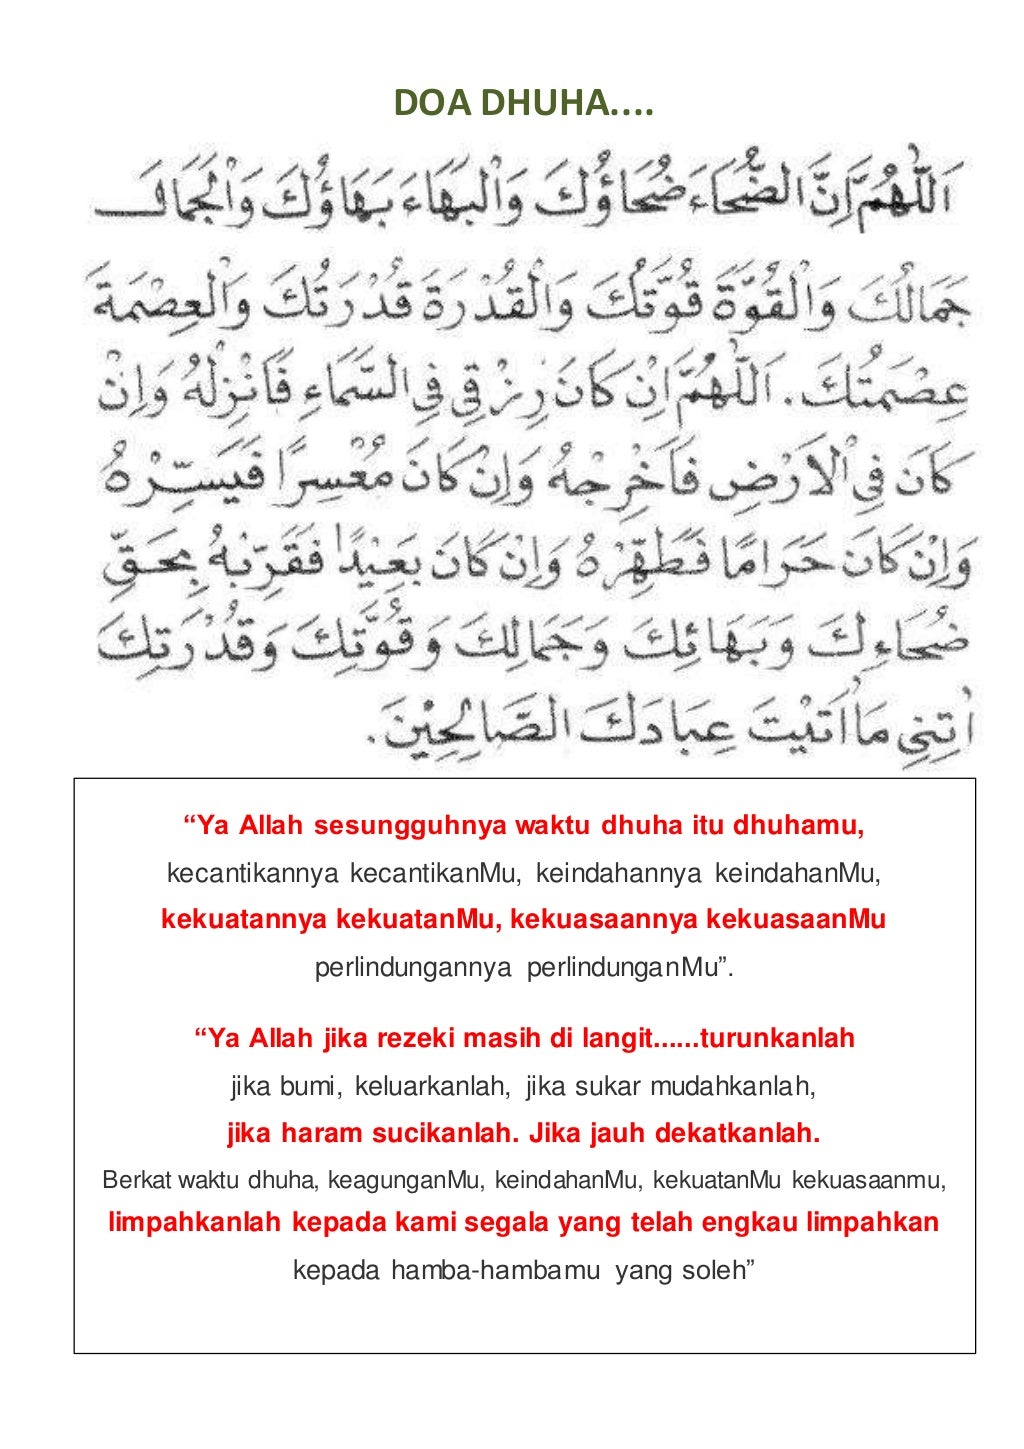 DOA DHUHA....
اَللّٰهُمَّ اِنَّ الضُّحَاءَ ضُحَاؤُكَ وَالْبَهَاءَ بَهَاؤُكَ وَالْجَمَالَ
جَمَالُكَ وَالْقُوَّةَ قُوَّتُكَ وَالْقُدْرَةَ قُدْرَتُكَ وَالْعِصْمَةَ
عِصْمَتُكَ. اَللّٰهُمَّ اِنْ كَانَ رِزْقِي فِي السَّمَاءِ فَاَنْزِلْهُ وَاِنْ
كَانَ فِي الْاَرْضِ فَاَخْرِجْهُ وَاِنْ كَانَ مُعْسِرًا فَيَسِّرْهُ
وَاِنْ كَانَ حَرَامًا فَطَهِّرْهُ وَاِنْ كَانَ بَعِيْدًا فَقَرِّبْهُ بِحَقِّ
ضُحَاءِكَ وَبَهَائِكَ وَجَمَالِكَ وَقُوَّتِكَ وَقُدْرَتِكَ
اٰتِنِي مَااَتَيْتَ عِبَادَكَ الصَّالِحِيْنَ.
“Ya Allah sesungguhnya waktu dhuha itu dhuhamu,
kecantikannya kecantikanMu, keindahannya keindahanMu,
kekuatannya kekuatanMu, kekuasaannya kekuasaanMu
perlindungannya perlindunganMu”.
“Ya Allah jika rezeki masih di langit......turunkanlah
jika bumi, keluarkanlah, jika sukar mudahkanlah,
jika haram sucikanlah. Jika jauh dekatkanlah.
Berkat waktu dhuha, keagunganMu, keindahanMu, kekuatanMu kekuasaanmu,
limpahkanlah kepada kami segala yang telah engkau limpahkan
kepada hamba-hambamu yang soleh”